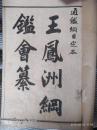 通鑑綱目定本
王鳳洲綱
鑑會纂